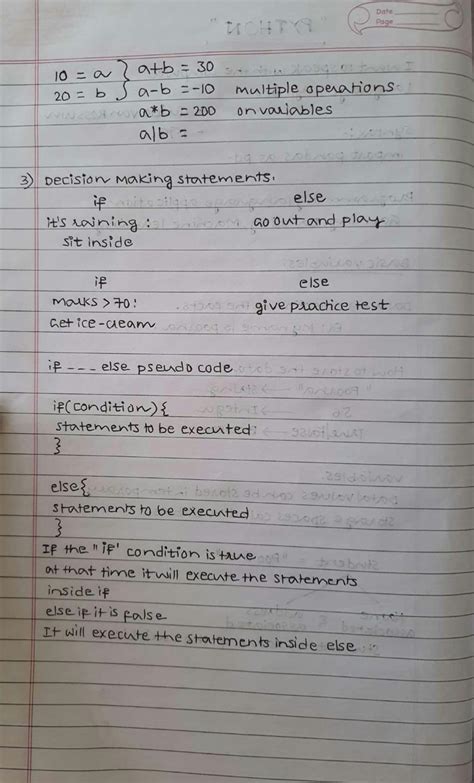 Date
Page
10 = a } a+b = 30
20 = b } a-b = -10 multiple operations
a*b = 200 on variables
a|b =
3) Decision Making statements.
if else
it's raining : go out and play
sit inside
if else
marks > 70: give practice test
Get ice-cream
if --- else pseudo code
if(condition){
statements to be executed
}
else{
statements to be executed
}
If the "if' condition is true
at that time it will execute the statements
inside if
else if it is false
It will execute the statements inside else